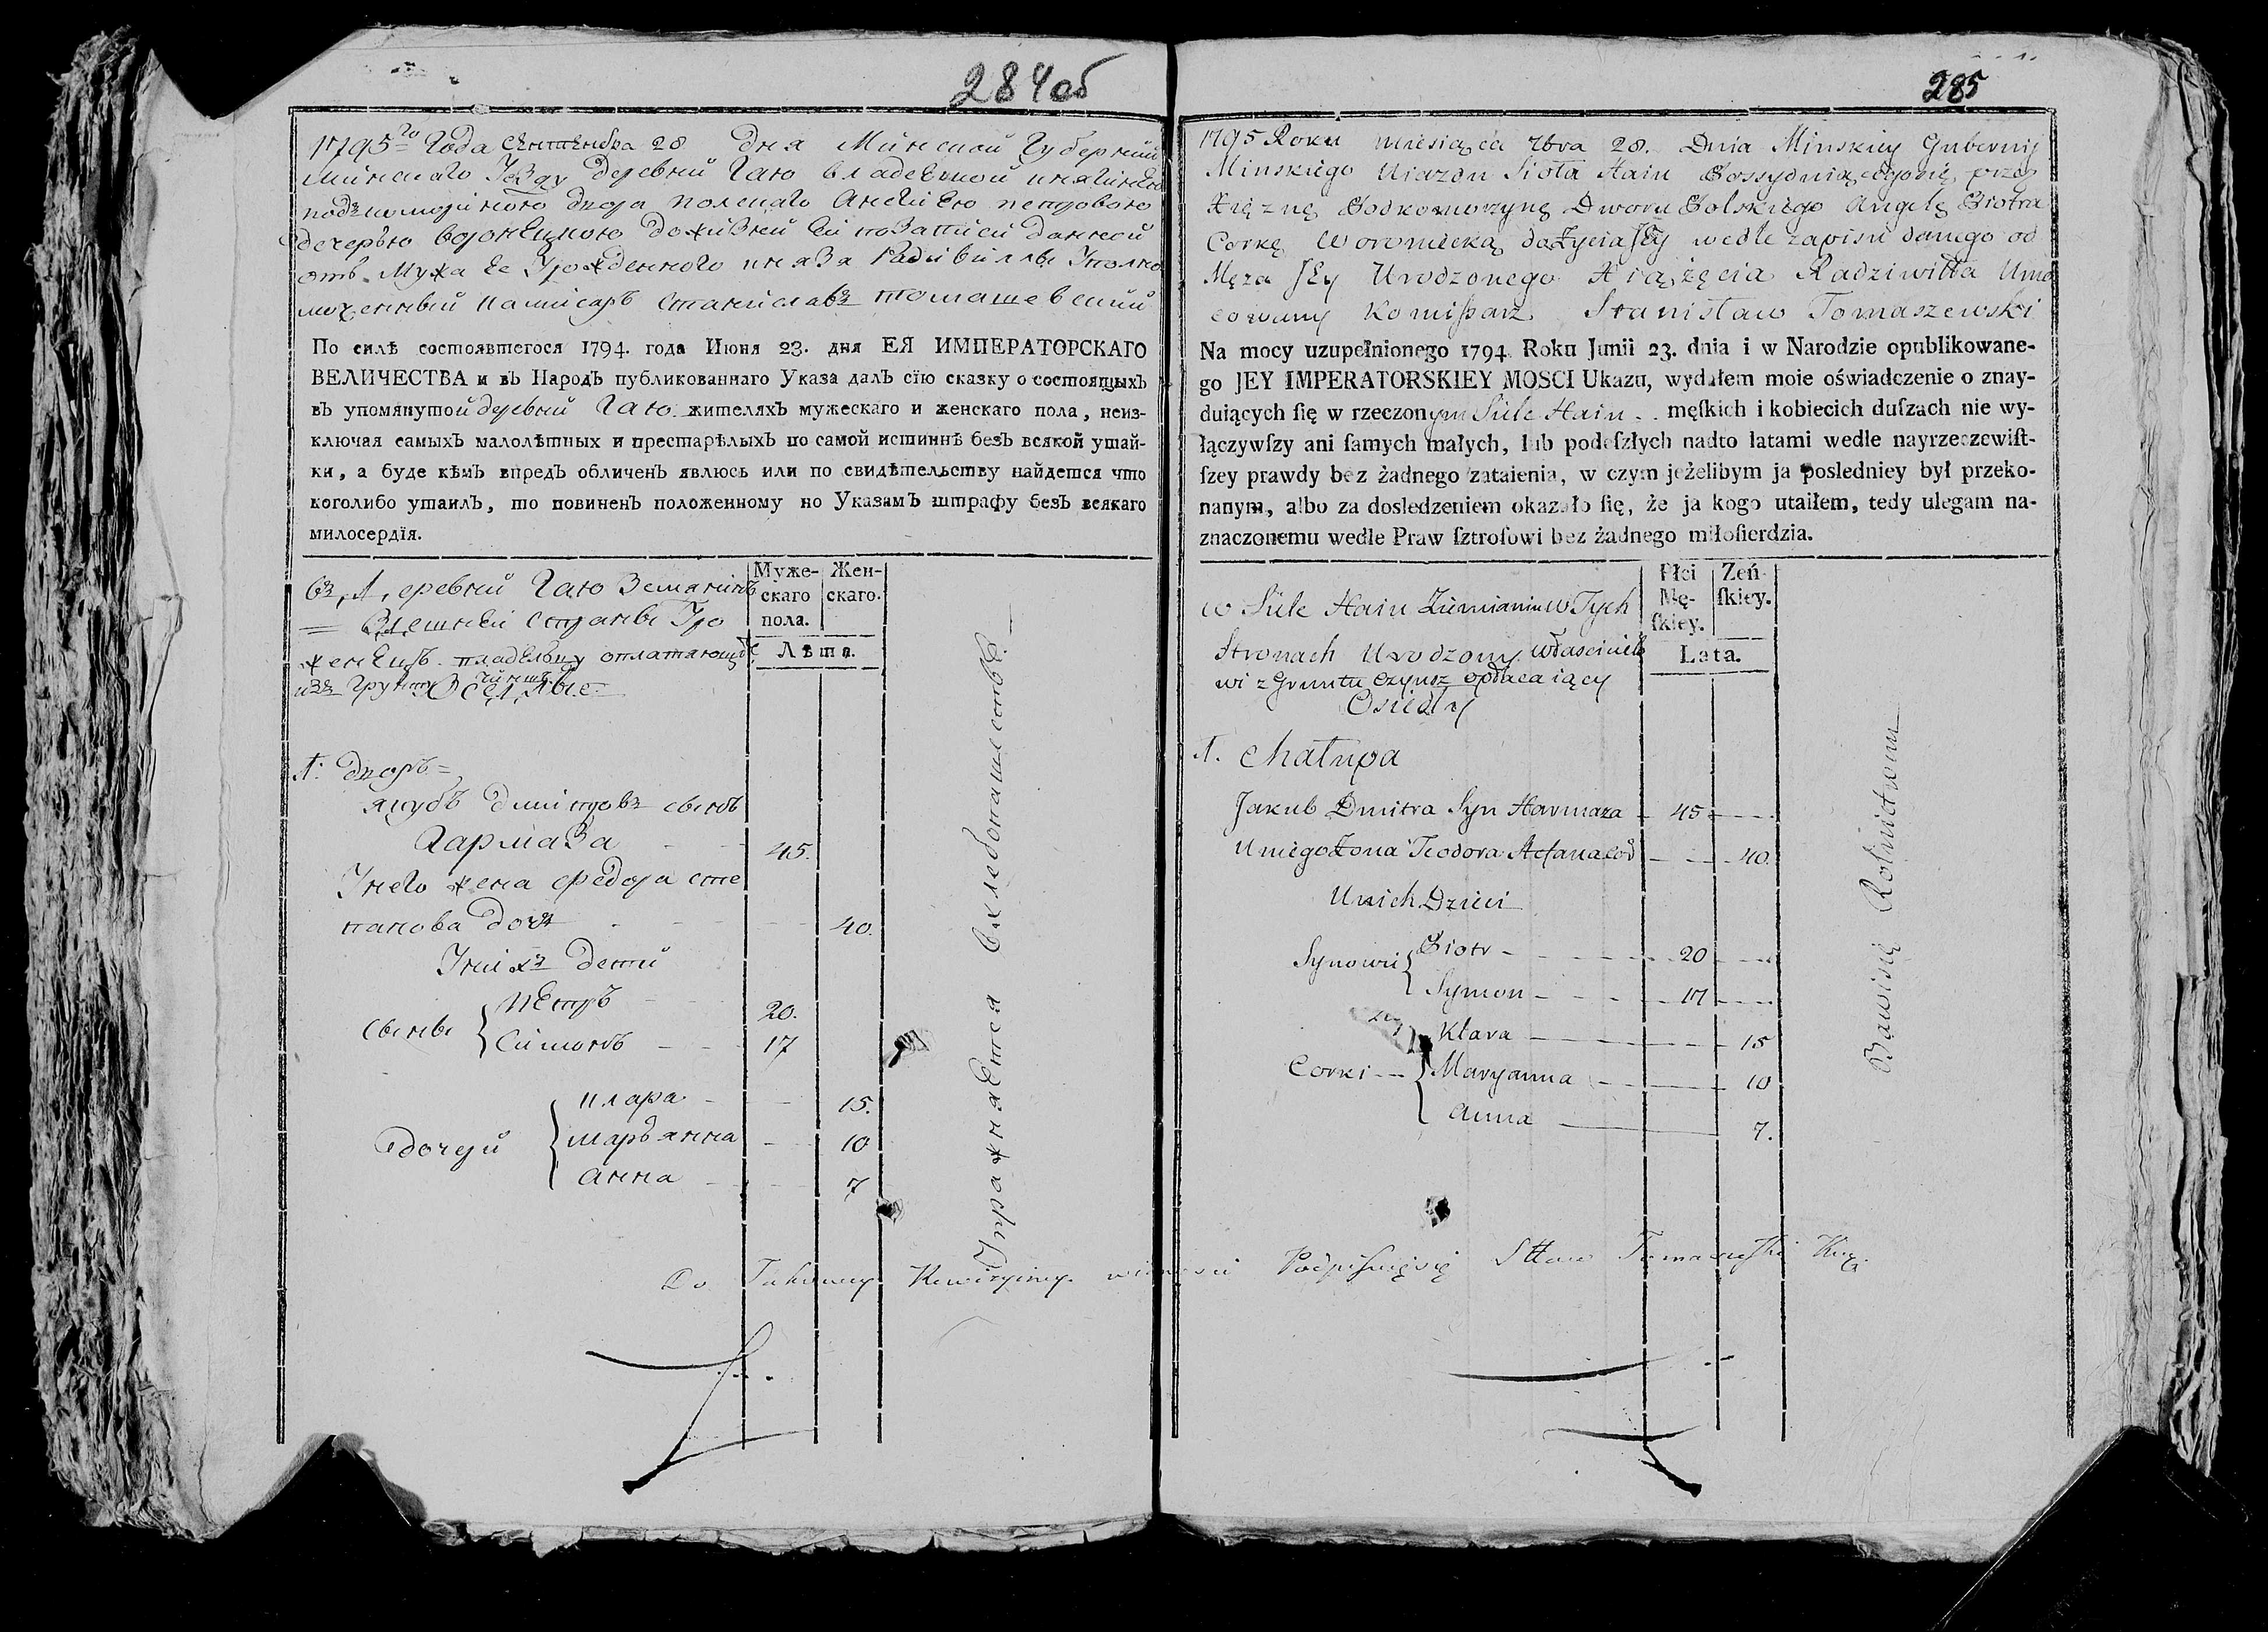 284об
1795го Года Сентебра 28 дня Минской Губерний
Минскаго Уезду деревни Гаю владеемой княгинею
подкомориною двора полскаго Анелиею петровою
дочерью воронецкою дожизней ей по записи данной
отъ Мужа Ее Урожденного князя Радивилла Уполно
моченный камисаръ Станиславъ томашевский
По силѣ состоявшегося 1794. года Июня 23. дня ЕЯ ИМПЕРАТОРСКАГО
ВЕЛИЧЕСТВА и въ Народъ публикованнаго Указа далъ сїю сказку о состоящыхъ
въ упомянутой деревни Гаю жителяхъ мужескаго и женскаго пола, неиз-
ключая самыхъ малолѣтных и престарѣлыхъ по самой истиннѣ безъ всякой утай-
ки, а буде кѣмъ впредъ обличенъ явлюсь или по свидѣтельству найдется что
коголибо утаилъ, то повиненъ положенному по Указамъ штрафу безъ всякаго
милосердїя.
Муже-
скаго
пола.
Жен-
скаго.
Лѣта.
въ деревни Гаю Земянинъ
Здешней Страны Уро
женецъ владельцу оплатяющи
изъ Грунту чиншъ Оселые
1. дворъ
якубъ дмитровъ сынъ
Гармаза 45.
Унего жена федора сте
панова дочь 40.
Унихъ дети
сыны { пЕтръ 20.
Симонъ 17
дочери { клара 15.
марьянна 10
анна 7
УпражняЕтся вхлебопашестве
285
1795 Roku miesiąca 7bra 28. Dnia Minskiey Gubernij
Minskiego Uiazdu Sioła Hain Possyduiącego się przez
Xiężnę Podkomorzynę Dworu Polskiego Angelę Piotra
Corkę Woroniecką do Życia JEy wedle zapisu danego od
Męża JEy Urodzonego Xiążęcia Radziwiłła Umo
cowany Komißarz Stanisław Tomaszewski
Na mocy uzupełnionego 1794. Roku Junii 23. dnia i w Narodzie opublikowane-
go JEY IMPERATORSKIEY MOSCI Ukazu, wydałem moie oświadczenie o znay-
duiących ſię w rzeczonym Siele Hain męſkich i kobiecich duſzach nie wy-
łączywſzy ani ſamych małych, lub podeſzłych nadto latami wedle nayrzeczewiſt-
ſzey prawdy bez żadnego zataienia, w czym jeżelibym ja posledniey był przeko-
nanym, albo za dosledzeniem okazało ſię, że ja kogo utaiłem, tedy ulegam na-
znaczonemu wedle Praw ſztroſowi bez żadnego miłoſierdzia.
Płci
Mę-
ſkiey.
Zeń-
ſkiey.
Lata.
w Siele Hain Ziemianin w Tych
Stronach Urodzony właścicielo
wi z Gruntu czynsz opłacaiący
Osiadły
1. Chałupa
Jakub Dmitra Syn Harmaza 45
U niego Żona Teodora 40.
U nich Dzieci
Synowie { Piotr 20
Symon 17
Corki { Kłara 15
Maryanna 10
Anna 7.
Bawi się Rolnictwem
Do Takowey Rewizyiney Podpisuię się Sttaw Tomaszewski